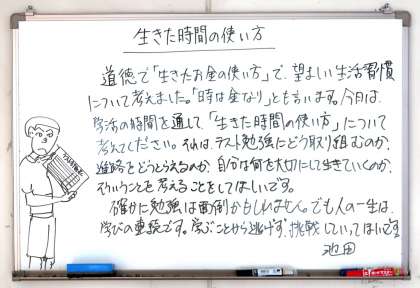 生きた時間の使い方
道徳で「生きたお金の使い方」で、望ましい生活習慣
について考えました。「時は金なり」とも言います。今日は、
学活の時間を通して、「生きた時間の使い方」について
考えてください。それは、テスト勉強にどう取り組むのか、
進路をどうとらえるのか、自分は何を大切にして生きていくのか、
そういうことを考えることをしてほしいです。
確かに勉強は面倒かもしれません。でも人の一生は、
学びの連続です。学ぶことから逃げず、挑戦していってほしいです。
池田